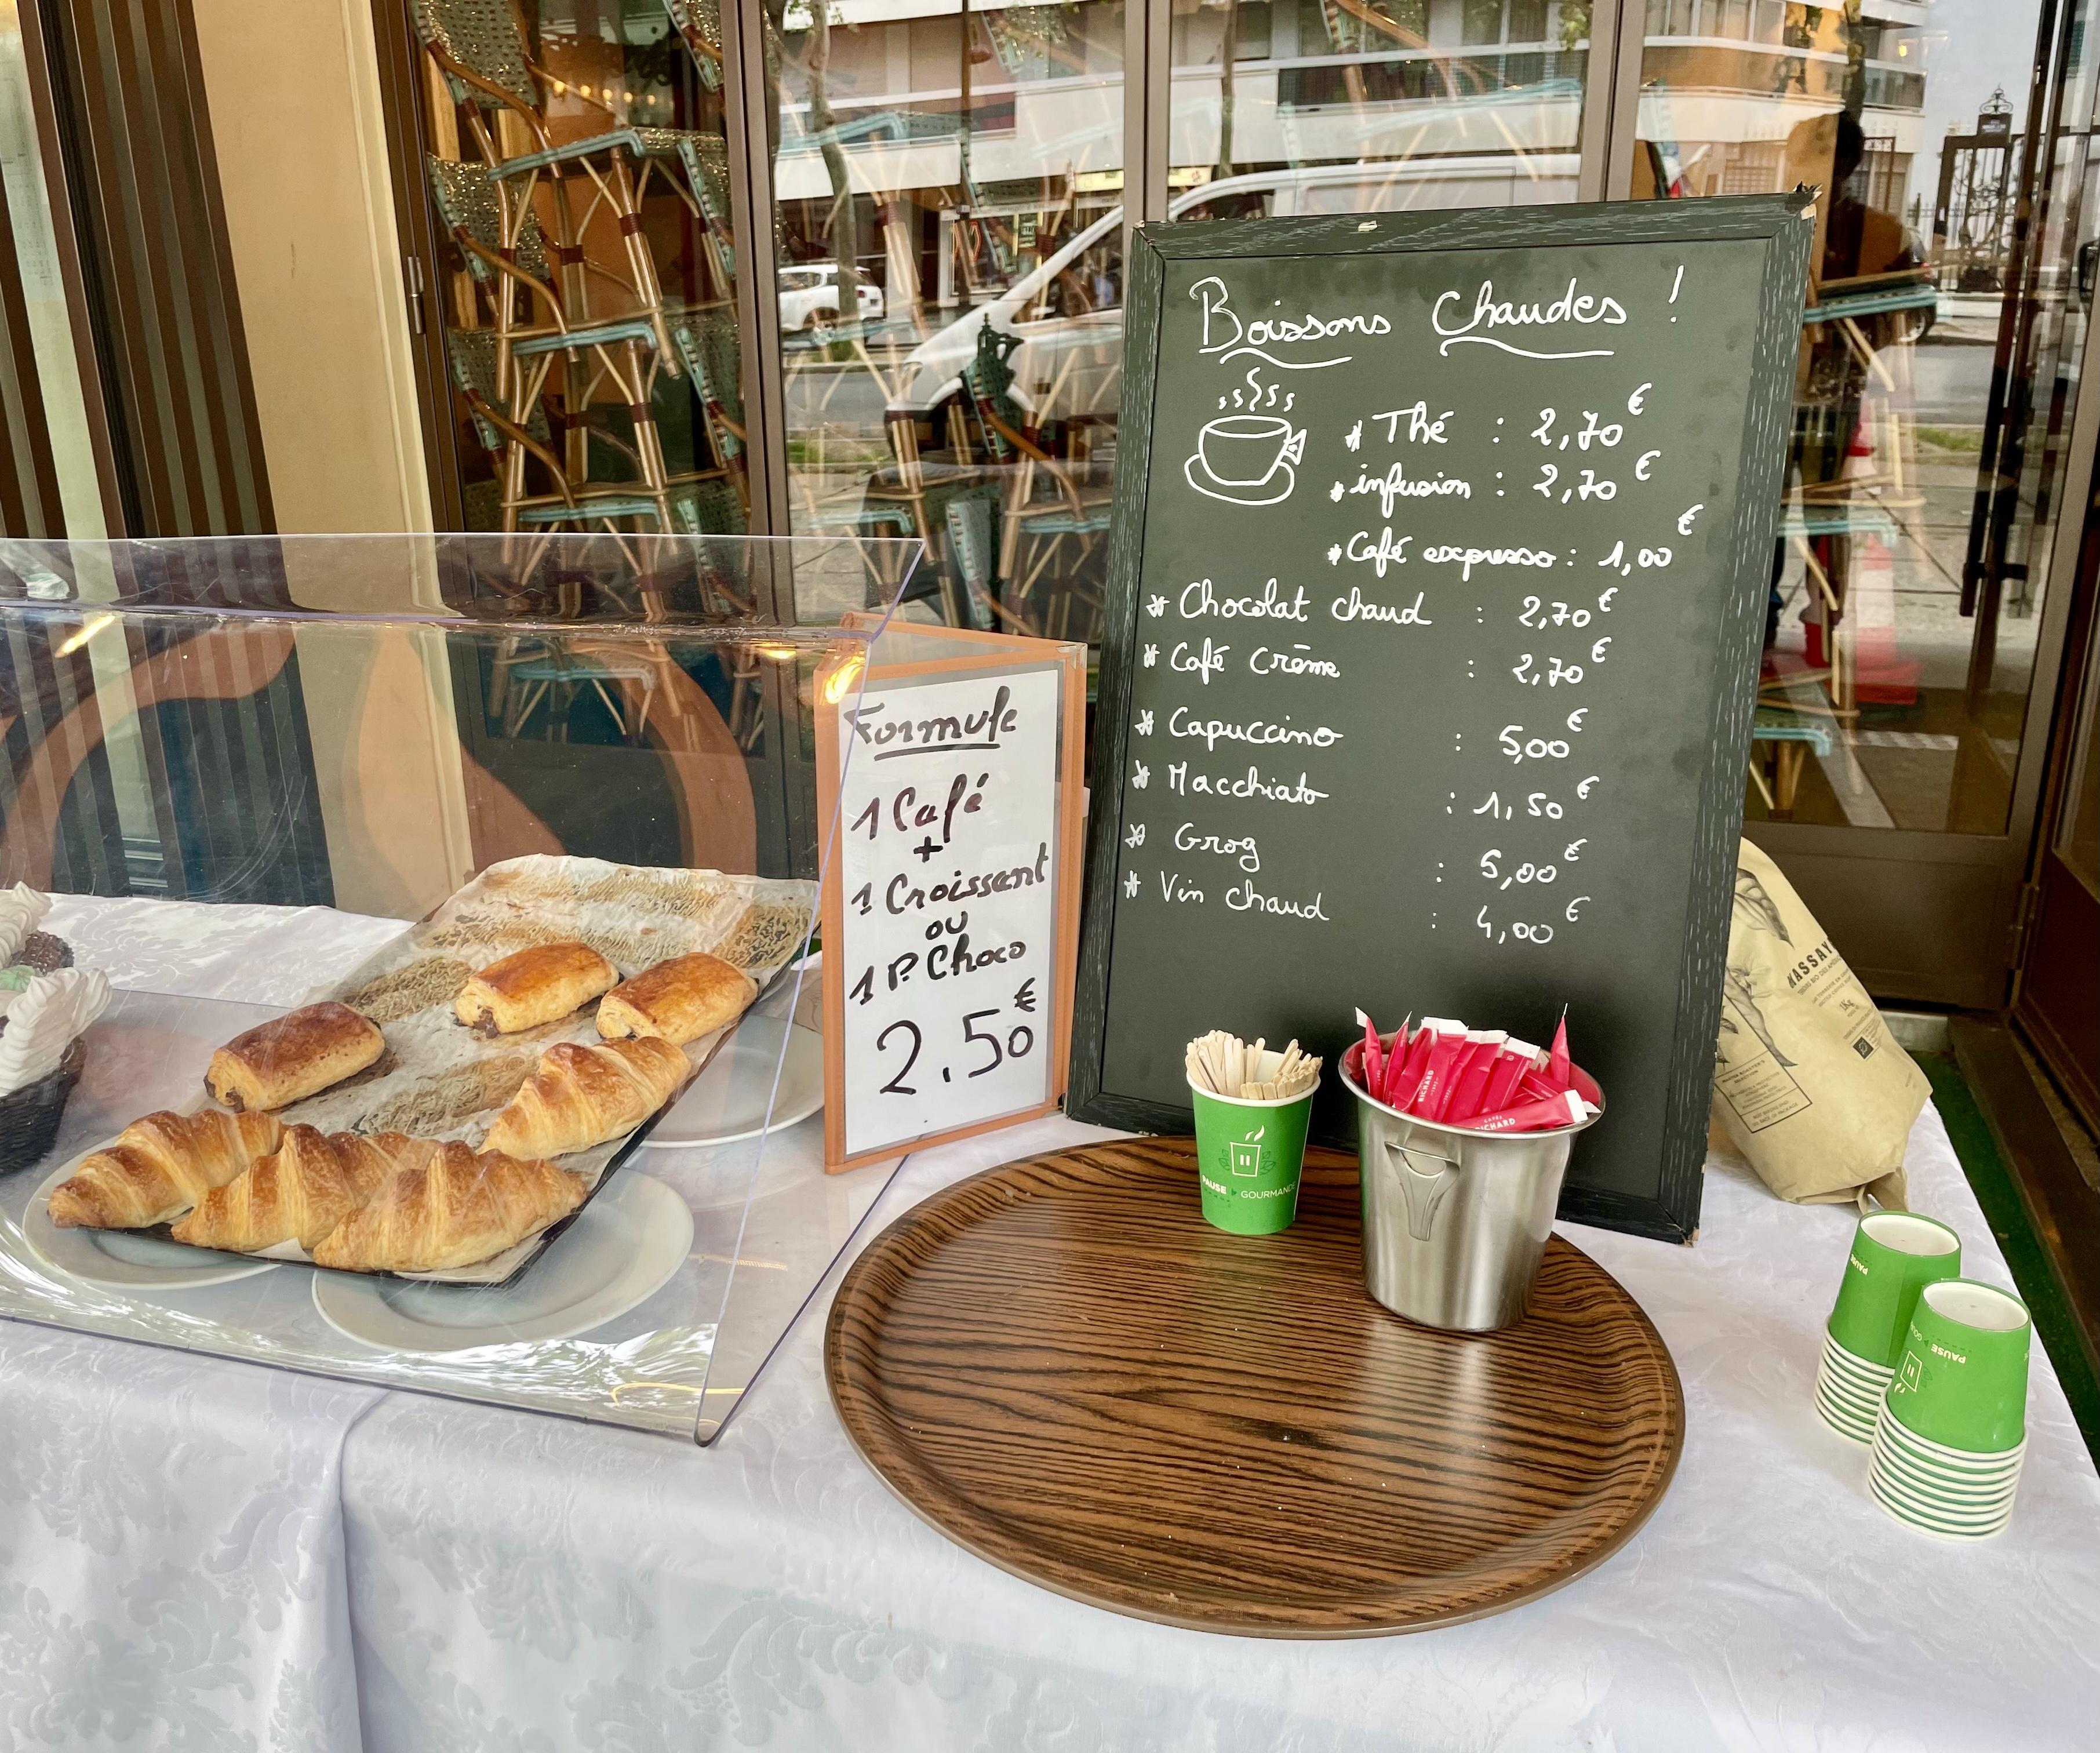 Boissons Chaudes !
* Thé : 2,70 €
* infusion : 2,70 €
* Café expresso : 1,00 €
* Chocolat chaud : 2,70 €
* Café Crème : 2,70 €
* Capuccino : 5,00 €
* Macchiato : 1,50 €
* Grog : 5,00 €
* Vin chaud : 4,00 €
Formule
1 Café
+
1 Croissant
ou
1 P. Choco
2.50 €
PAUSE GOURMANDE
RICHARD
RICHARD
PAUSE